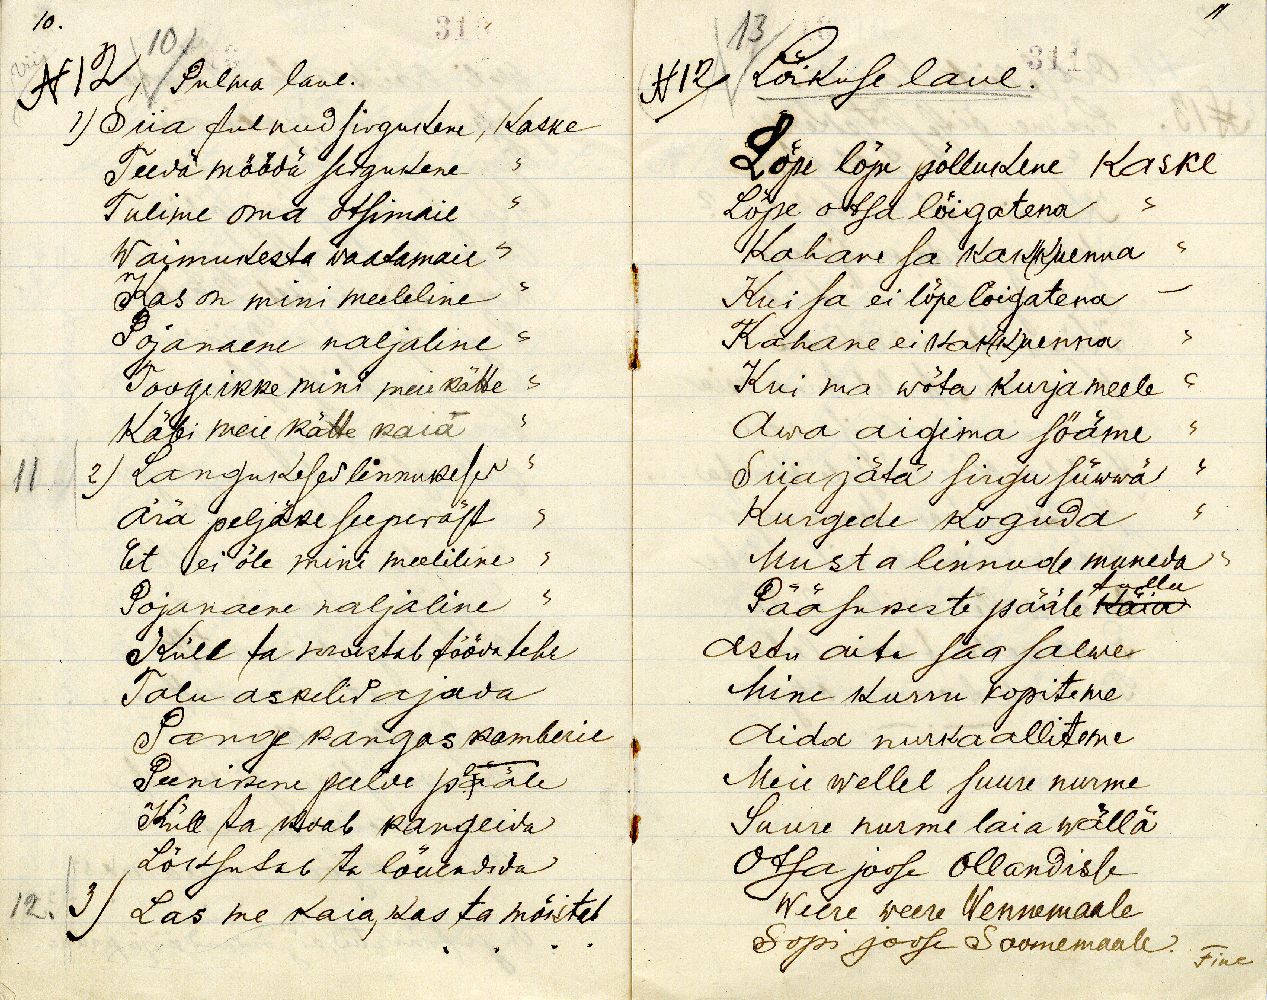 10.
10
310
№12, Pulma laul.
1) Siia tulnud sirgukene, Kaske
Teedä möödä sirgukene "
Tulime oma otsimaie "
Waimukesta waatamaie "
Kas on mini meeleline "
Pojanaene naljaline "
Toogiikke mini meie kätte "
Käsi meie kätte kaia "
11 2) Langukesed linnukesed "
Ärä peljäke seeperäst "
Et ei öle mini meeliline "
Pojanaene naljaline "
Küll ta moistab tööva tehe
Talu askelid ajada
Pange kangas kamberie
Peenikene pääle
Küll ta koab kangeida
Löksutab ta löuendida
12. 3) Las me kaia, kas ta möistab
. . . .
11
13
311
№12 Löikuse laul.
Löpe löpe pöllukene Kaske
Löpe otsa löigatena "
Kahane sa kakkuenna "
Kui sa ei löpe loigatena "
Kahane ei kakkuenna "
Kui ma wöta kurja meele "
Awa aigima sööme "
Siia jätä sirgu süwwä "
Kurgede koguda "
Musta linnude muneda "
Pääsukeste pääle käia tullu
Astu aita saa salwe
Mine kurru kopiteme
Aida nurka alliteme
Meie wellel suure nurme
Suure nurme laia wällä
Otsa joose Ollandisse
Weere weere Wennemaale
Sopi joose Soomemaale.
Fine